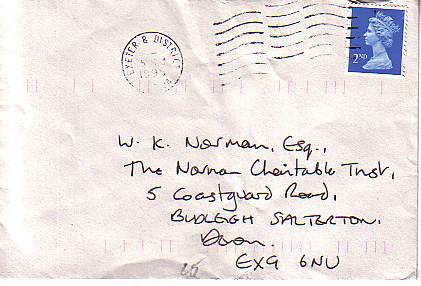 EXETER & DISTRICT
1995
2ND
W. K. Norman, Esq.,
The Norman Charitable Trust,
5 Coastguard Road,
BUDLEIGH SALTERTON.
Devon.
EX9 6NU